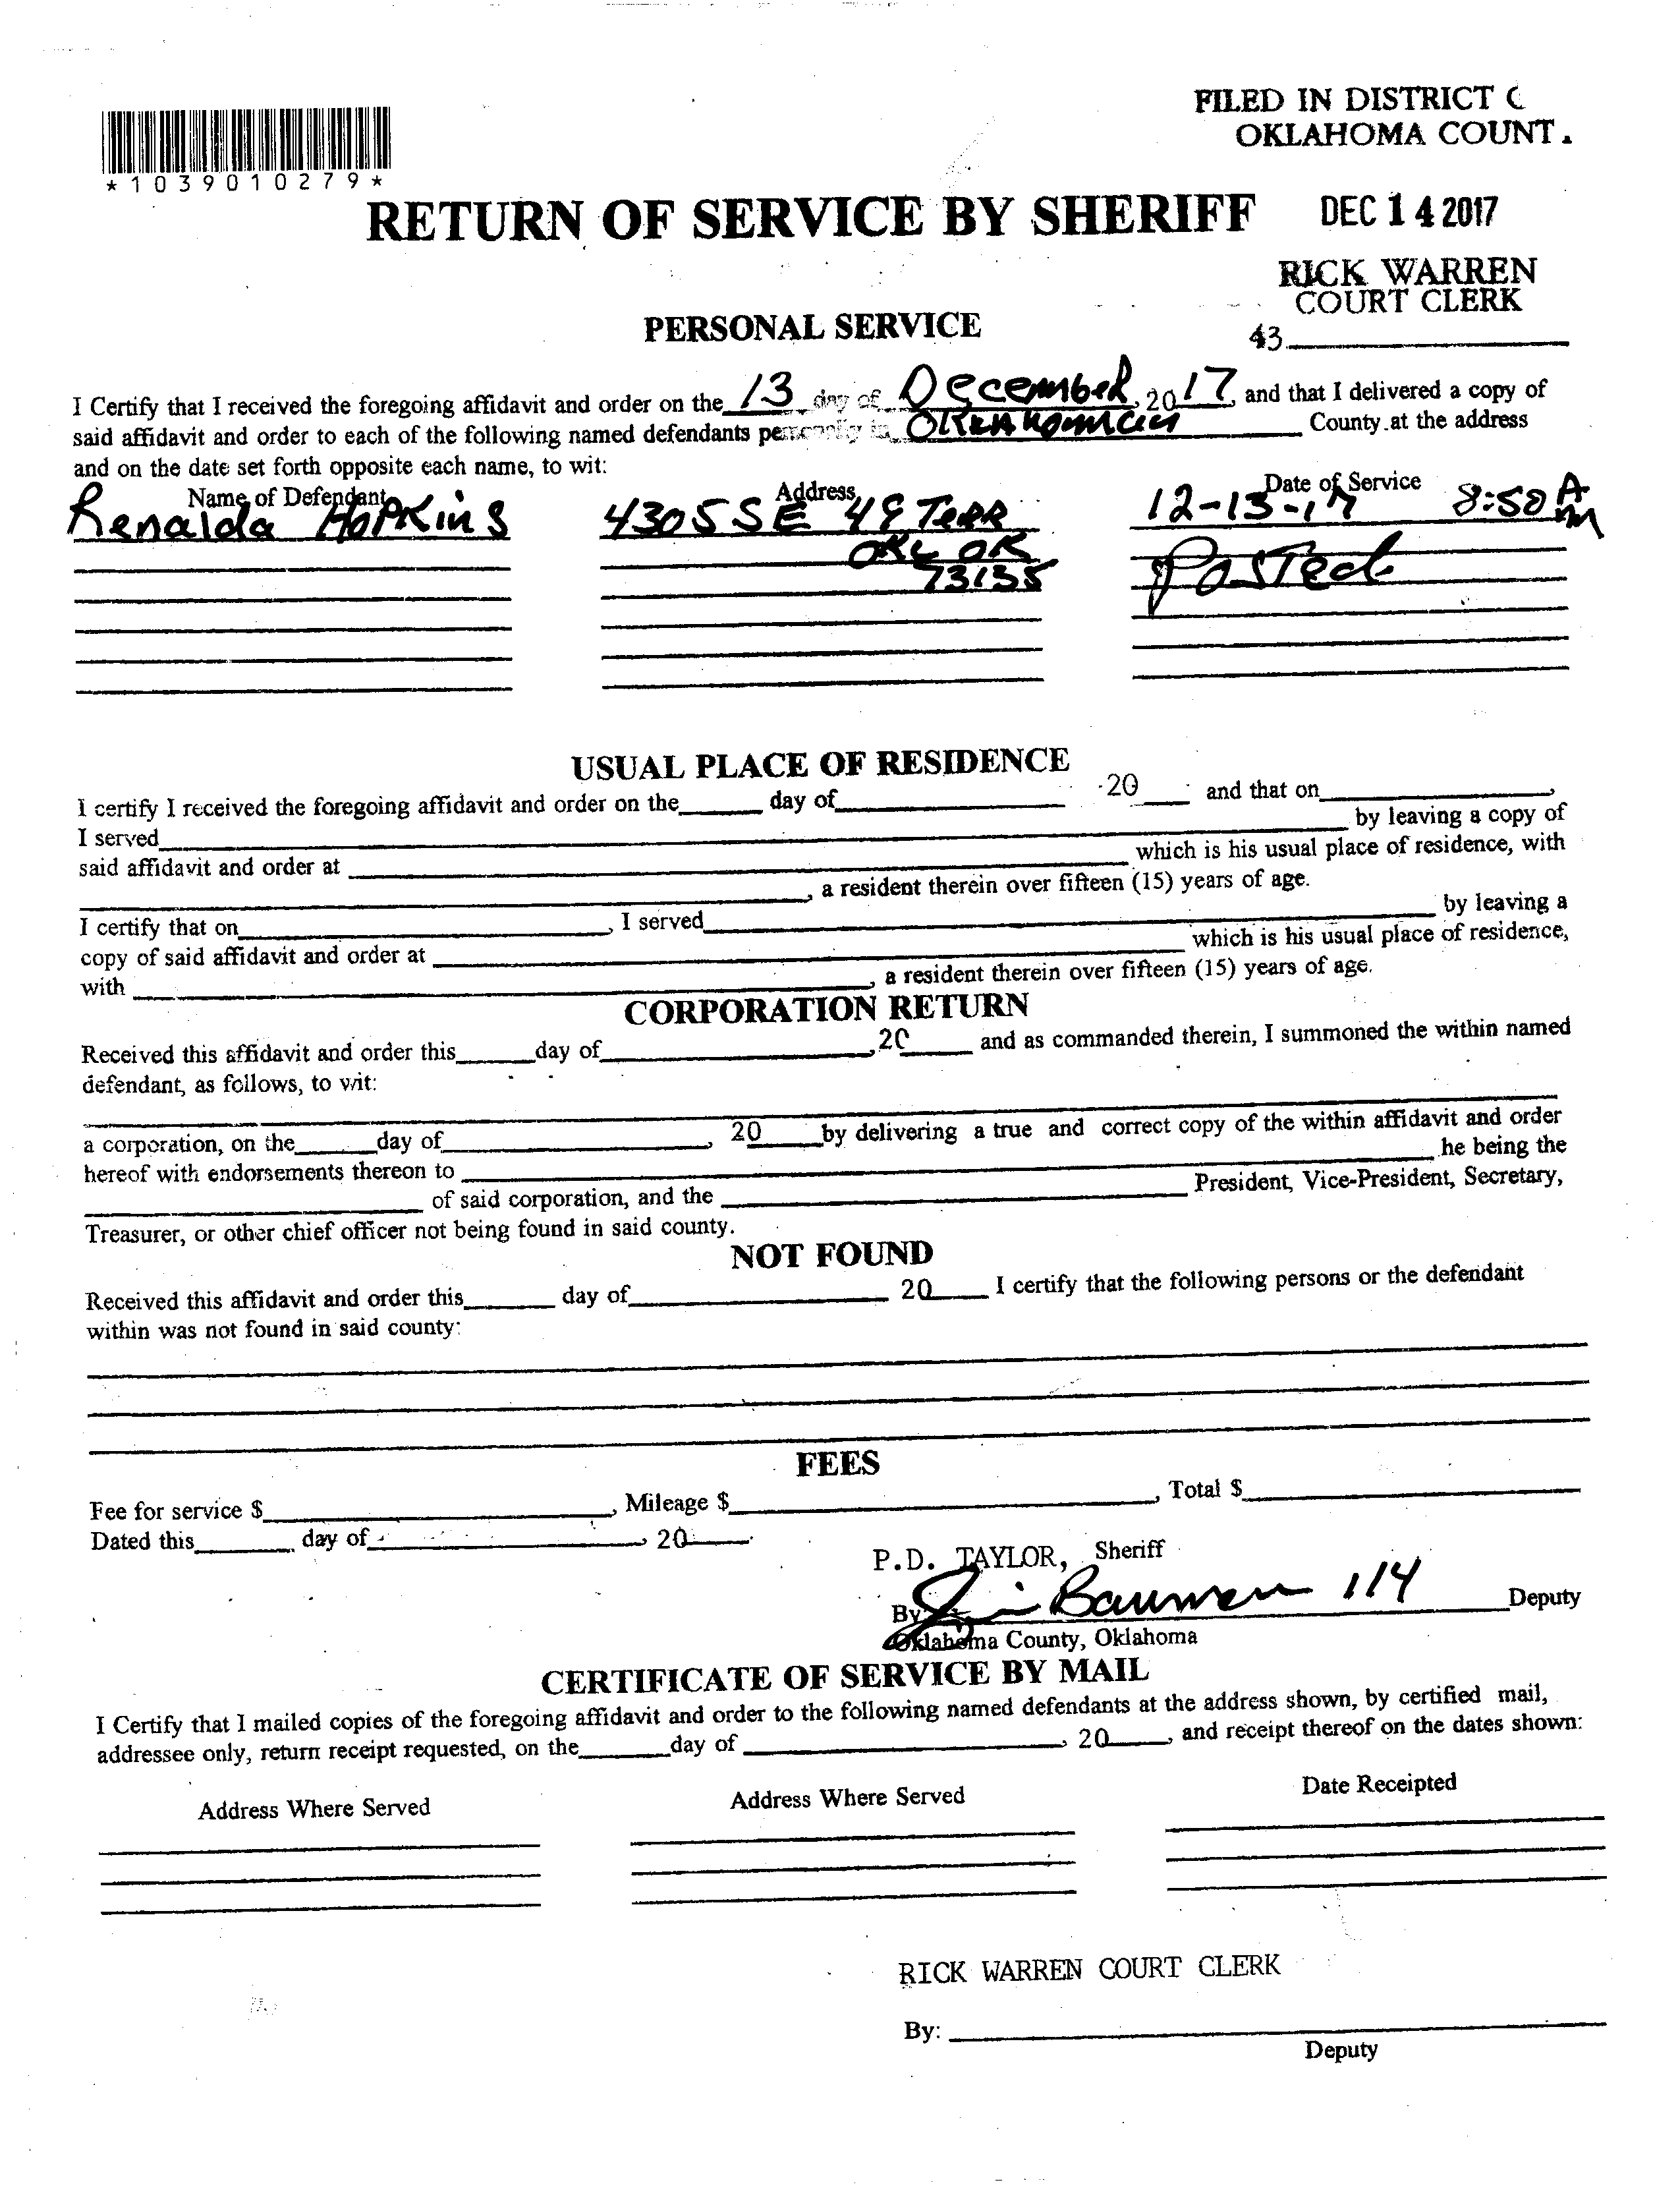 FILED IN DISTRICT C
OKLAHOMA COUNT
*1039010279*
RETURN OF SERVICE BY SHERIFF
DEC 14 2017
RICK WARREN
COURT CLERK
43
PERSONAL SERVICE
I Certify that I received the foregoing affidavit and order on the 13 day of December, 20 17, and that I delivered a copy of
said affidavit and order to each of the following named defendants personally in County at the address
and on the date set forth opposite each name, to wit:
Name of Defendant Address Date of Service
Renalda Hopkins 4305 SE 49 Terr 12-13-17 8:50 AM
OKC OK Posted
73135
USUAL PLACE OF RESIDENCE
I certify I received the foregoing affidavit and order on the day of 20 and that on
I served by leaving a copy of
said affidavit and order at which is his usual place of residence, with
, a resident therein over fifteen (15) years of age.
I certify that on , I served by leaving a
copy of said affidavit and order at which is his usual place of residence,
with , a resident therein over fifteen (15) years of age.
CORPORATION RETURN
Received this affidavit and order this day of , 20 and as commanded therein, I summoned the within named
defendant, as follows, to wit:
a corporation, on the day of , 20 by delivering a true and correct copy of the within affidavit and order
hereof with endorsements thereon to he being the
of said corporation, and the President, Vice-President, Secretary,
Treasurer, or other chief officer not being found in said county.
NOT FOUND
Received this affidavit and order this day of 20 I certify that the following persons or the defendant
within was not found in said county:
FEES
Fee for service $ , Mileage $ , Total $
Dated this day of , 20
P.D. TAYLOR, Sheriff
By Bauman 114 Deputy
Oklahoma County, Oklahoma
CERTIFICATE OF SERVICE BY MAIL
I Certify that I mailed copies of the foregoing affidavit and order to the following named defendants at the address shown, by certified mail,
addressee only, return receipt requested, on the day of , 20 , and receipt thereof on the dates shown:
Address Where Served Address Where Served Date Receipted
RICK WARREN COURT CLERK
By:
Deputy